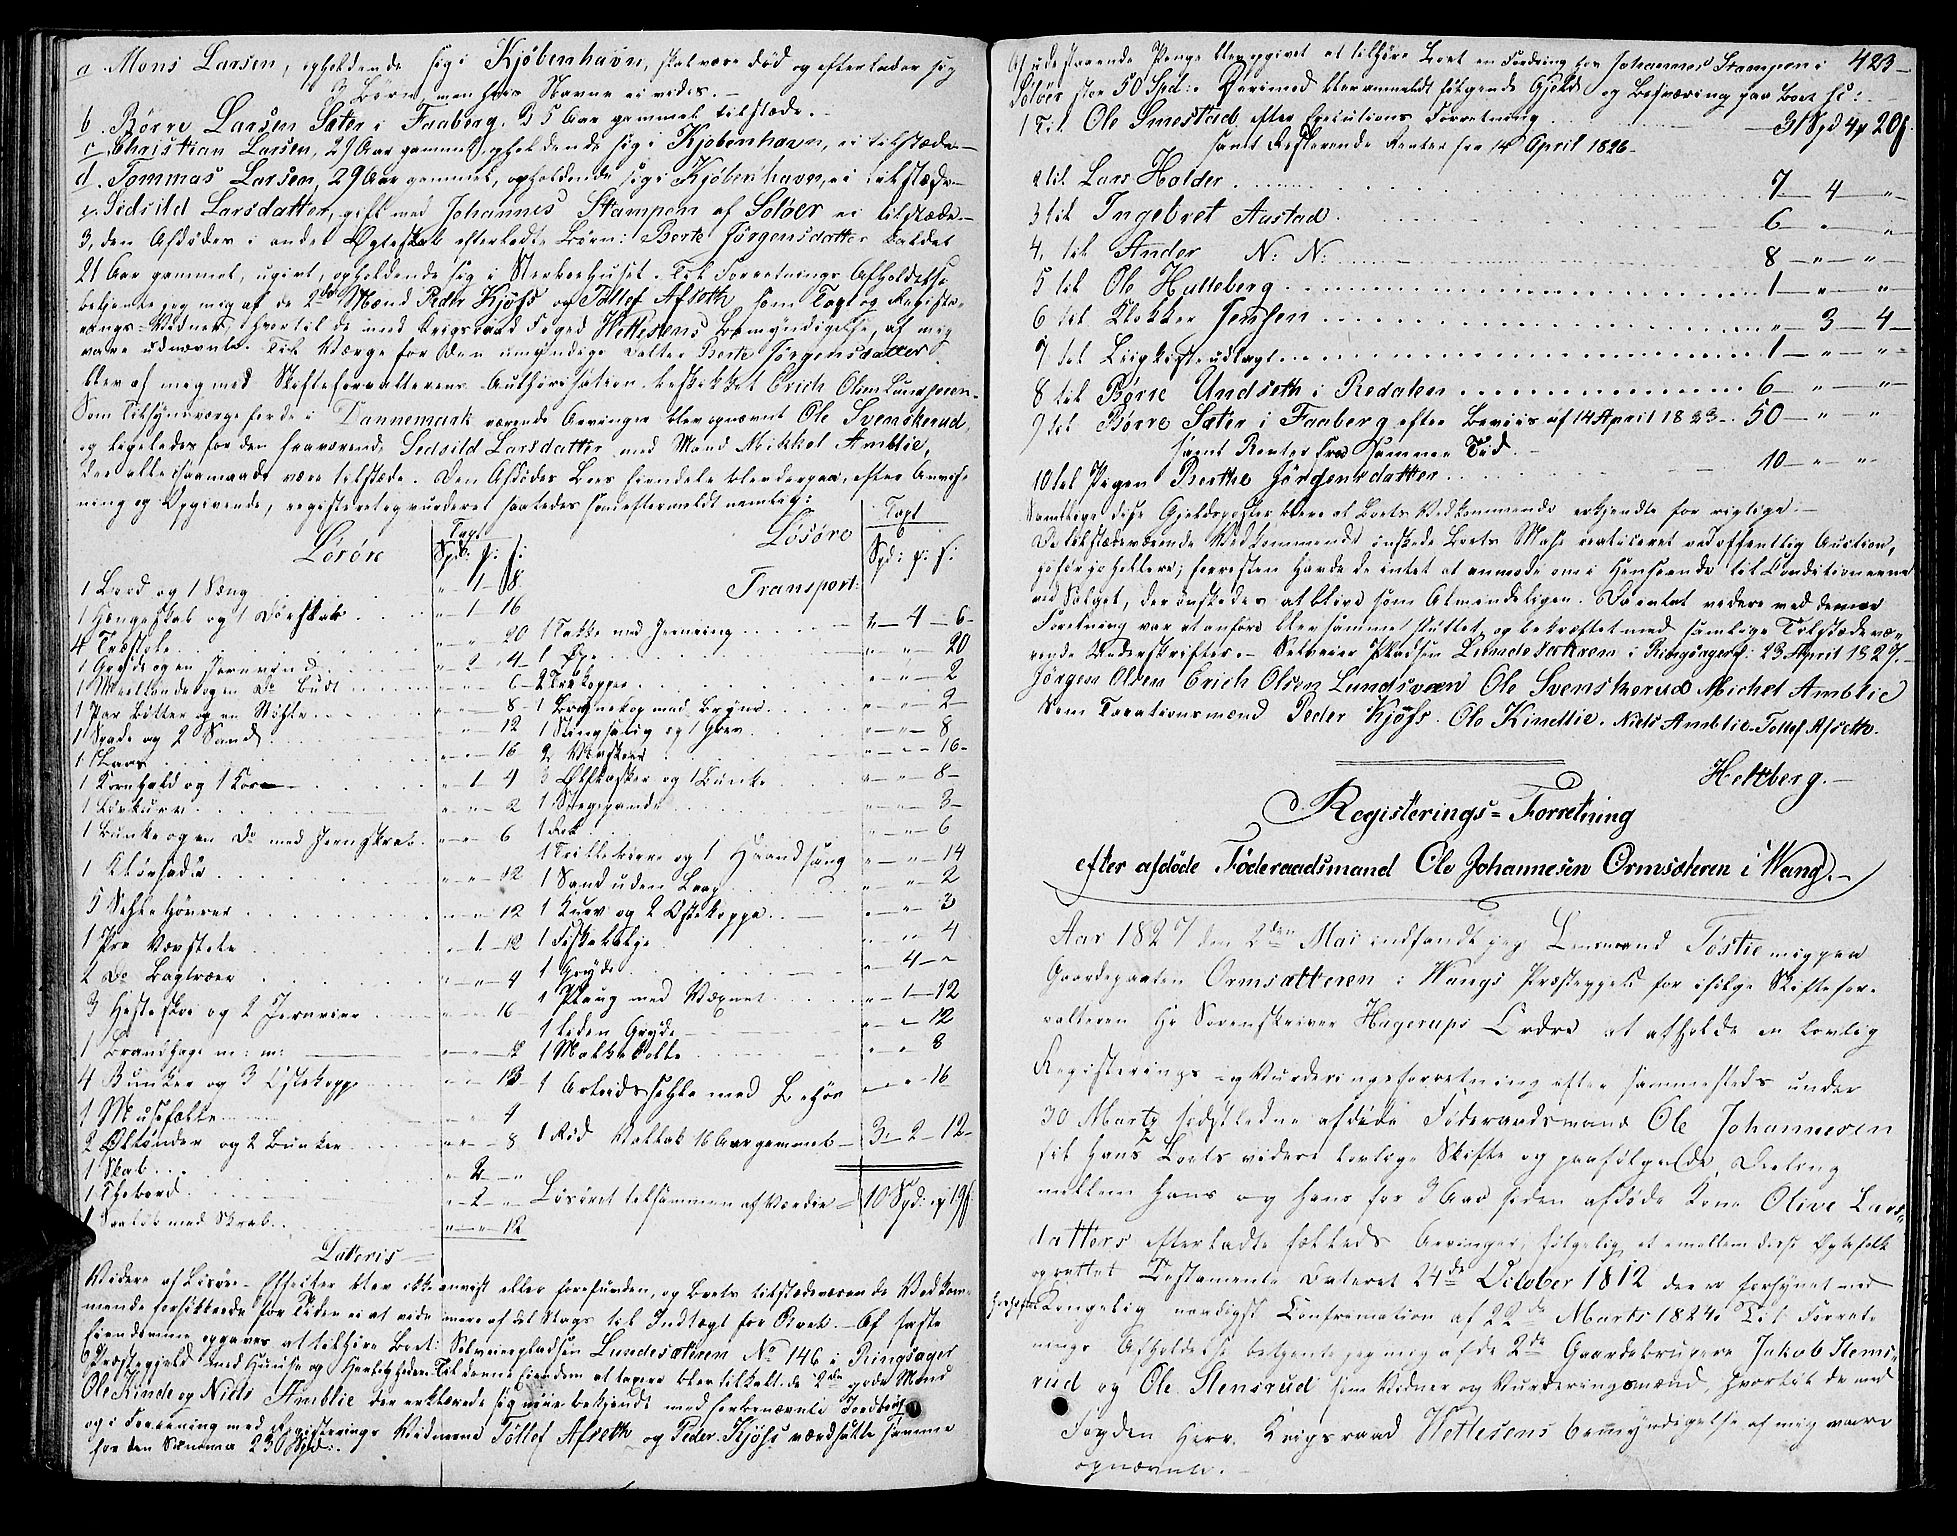 a. Mons Larsen, opholdende sig i Kjøbenhavn, skal være død og efterlader sig
3 Børn, men hvis Navne ei vides.-
b. Børre Larsen Sæter i Faaberg, 35 Aar gammel tilstæde.-
c. Christian Larsen, 29 Aar gammel, opholdende sig i Kjøbenhavn, ei tilstæde-
d. Tommas Larsen, 29 Aar gammel, opholdende sig i Kjøbenhavn, ei tilstæde-
e. Sidsild Larsdatter, gift med Johannes Stampen af Soløer ei tilstæde-
3, den Afdødes i andet Ægteskab efterladte Børn: Berte Jørgensdatter kaldet
21 Aar gammel, ugivt, opholdende sig i Sterkerhuset. Til Forretnings Afholdelse
betjente jeg mig af de 2de Mænd Peder Kjøss og Tollef Afseth, som Taxt og Registe-
rings-Vidner, hvortil de med Krigsraad Foged Wettesens Bemyndigelse, af mig
vare udnævnte. Til Værge for den umyndige Datter Berte Jørgensdatter
blev af meg med Skifteforvalterens Authorisation beskikket Erich Olsen Lundsveen.
Som Tilsynsværge for de i Dannemark værende Arvinger blev opnævnt Ole Svenskerud,
og ligeledes for den fraværende Sedsild Larsdatter med Mand Mikkel Amblie,
der alle ligemaade vare tilstæde. Den Afdødes Boes Eiendele blev derpaa, efter Anvis-
ning og Opgivende, registeret og vurderet saaledes som eftermeldt nemlig:
Løsøre
Taxt
Spd: p: s:
1 Bord og 1 Seng " 1 8
1 Hængeskab og 1 Hørskab " 1 16
4 Træstole " " 20
1 Grøde og en Jernpind " 2 4
" " 6
1 Par Bøtter og en Støhle " " 8
1 Spade og 2 Sand " " 12
" " 16
1 Kornhald og 1 Kore " 1 4
1 Løvkurv " " 2
1 Bunke og en Do med Jernskrab " " 6
1 Kløvsadel " " 12
5 " " 12
1 Par Vævstole " 1 12
2 Do Bagtræer " " 4
3 Hesteskoe og 2 Jernvier " " 16
1 Brandhage m: m: " " 12
4 Bunker og 3 Ostekopper " " 13
1 Musefælle " " 4
2 Øltønder og 2 Bunker " " 8
1 Skab " 2 "
1 Thebord " 2 "
1 Saaløb med Skrab " " 12
Lateris
Løsøre
Taxt
Spd: p: s:
Transport:
1 Takke med Jernring " 4 6
1 Øxe " " 20
2 Trækopper " " 2
1 Brynekop med Bryne " " 2
1 Stingsalig og 1 Grev " " 8
" " 16
3 Ølflasker og 1 Bunke " " 8
1 Stegepande " " 3
1 Fad " " 6
1 Trillebørre og 1 Haandsaug " " 14
1 Sand uden Laag " " 2
1 Kurv og 2 Ostekopper " " 3
1 Fiskeblije " " 4
1 Gryde " 4 "
1 Plaug med Væpnet " 1 12
1 Liden Gryde " " 12
1 Malkebøtte " " 8
1 Arbeidssehle med Behør " " 16
1 Rød Vallak 16 Aar gammel 3 2 12
Løsøret tilsammen af Værdie 10 Spd: " p 19 s
Videre af Løsøre-Effecter blev ikke anvist eller forefunden, og Boets tilstædeværende Vedkom-
mende forsikkrede for Tiden ei at vide mere af det Slags til Indtægt for Boet. - Af faste
Eiendomme opgaves at tilhøre Boet: Selveierpladsen Lundesæteren No 146 i Ringsager
Præstegjeld med Huuse og Herligheder. Til denne Eiendom at taxere blev tilkaldt de 2de gode Mænd
Ole Kinde og Niels Amblie der erklærede sig nøie bekjendt med forbenævnte Jordbrug
og i Forening med Registerings Vidnerne Tollef Afseth og Peder Kjøss værdsatte samme
for den Summa 230 Spd:
423
Af udestaaende Penge blev opgivet at tilhøre Boet en Fordring hos Johannes Stampen i
Soløer stor 50 Spd: Derimod blev anmeldt følgende Gjeld og Besværing paa Boet so:
1 Til Ole Smestad efter Executions Forretning 31 Spd 4 p 20 s.
samt Resterende Renter fra 14 April 1826
2 til Lars Holder 7 4 "
3 til Ingebret Aastad 6 " "
4, til Ander N: N: 8 " "
5 til Ole Halleberg 1 " "
6 til Klokker Jensen " 3 4
7 til Liigkiste udlagt 1 " "
8 til Børre Undseth i Redalen 6 " "
9 til Børre Sæter i Faaberg efter Beviis af 14 April 1823 50 " "
samt Renter fra samme Tid.
10 til Pigen Berthe Jörgensdatter 10 " "
Samtlige disse Gjeldsposter bleve af Boets Vedkommende erkjendte for rigtige.-
De tilstædeværende Vedkommende ønskede Boets Masse realiseret ved offentlig Auction,
jo før jo hellere; forresten havde de intet at anmode om i Henseende til Conditionerne
ved Salget, der ønskedes at blive som Almindeligen. Da intet videre ved denne
Forretning var at anføre blev samme sluttet og bekræftet med samtlige Tilstædevæ-
rende Underskrifter.- Selveier Pladsen Lundesæteren i Ringsager d: 23 April 1827.-
Jørgen Olsen Erich Olsen Lundsveen Ole Svenskerud Michel Amblie
Som Taxationsmænd Peder Kjøss. Ole Kindlie. Niels Amblie. Tollef Afseth.
Heltberg.-
Registerings-Forretning
efter afdöde Föderaadsmand Ole Johannesen Ormsæteren i Wang.-
Aar 1827 den 2den Mai indfandt jeg Lensmand Tostie mig paa
Gaardeparten Ormsætteren i Wangs Præstegjeld for ifølge Skiftefor-
valteren Hr Sorenskriver Hagerups Ordre at afholde en lovlig
Registerings og Vurderingsforretning efter sammesteds under
30 Marty sidstledne afdøde Föderaadsmand Ole Johannesen
til Hans Boets videre lovlige Skifte og paafølgende Deeling
mellem hans og hans for 3 Aar siden afdøde Kone Olive Lars-
datters efterladte fælleds Arvinger, følgelig et emellem disse Ægtefolk
oprettet Testamente Dateret 24de October 1812 der er forsynet med
Kongelig naadigst Confirmation af 22de Marts 1824. Til Forret-
nings Afholdelse betjente jeg mig af de 2de Gaardebrugere Jakob Stens-
rud og Ole Stensrud som Vidner og Vurderingsmænd, hvortil de med
Fogden Herr Krigsraad Wettesens bemyndigelse af mig vare
opnævnte.-